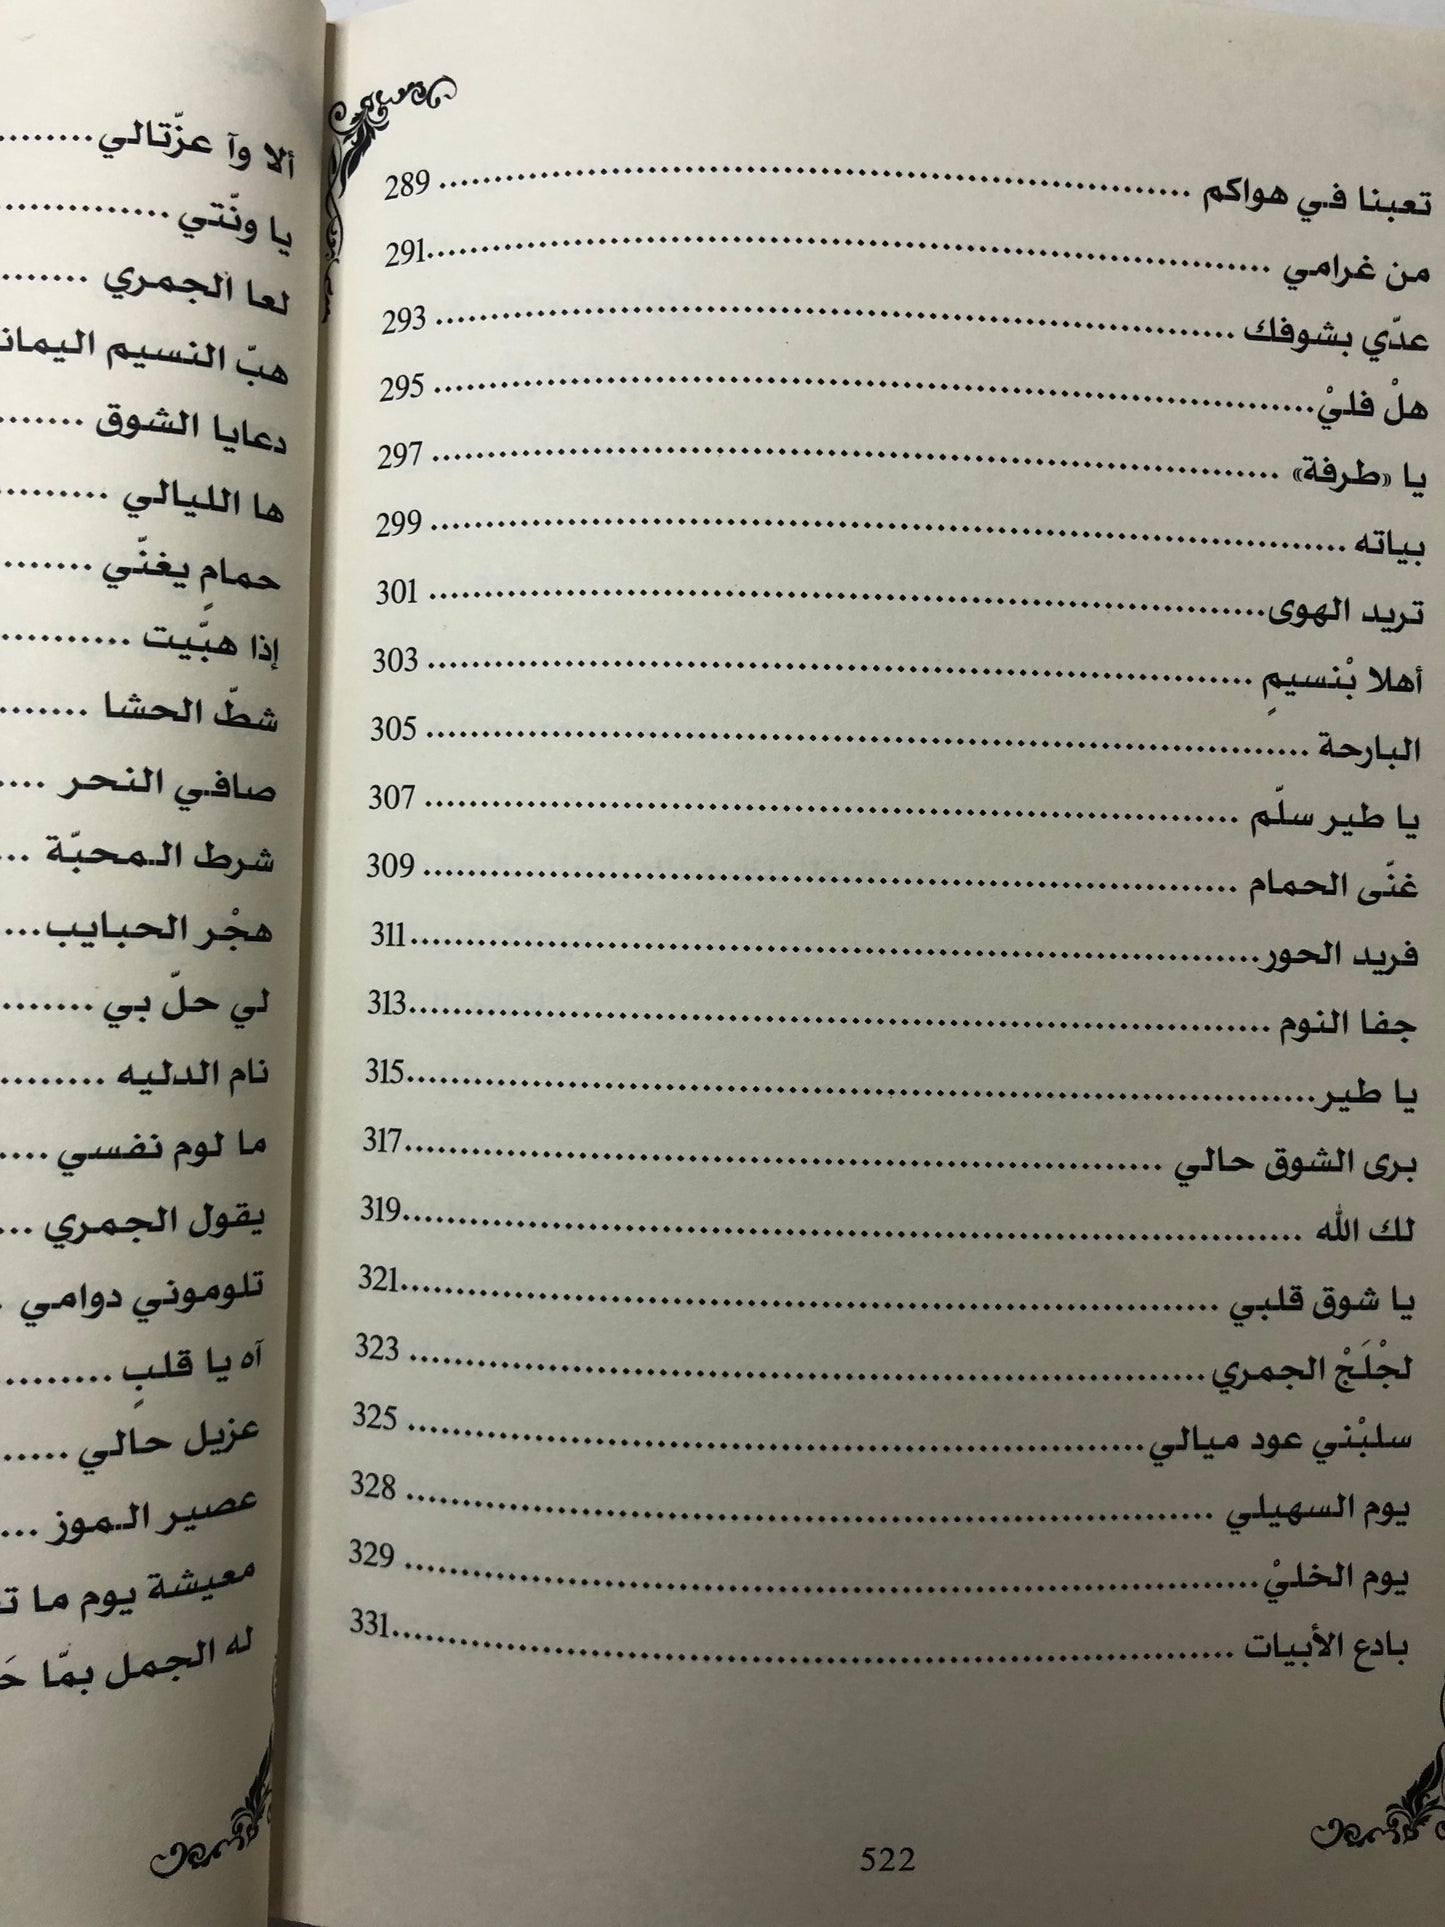 تعبنا في هواكم ........................................ 289
من غرامي ........................................ 291
عدّي بشوفك ........................................ 293
هلْ فليْ ........................................ 295
يا «طرفة» ........................................ 297
بياته ........................................ 299
تريد الهوى ........................................ 301
أهلا بْنسيمٍ ........................................ 303
البارحة ........................................ 305
يا طير سلّم ........................................ 307
غنّى الحمام ........................................ 309
فريد الحور ........................................ 311
جفا النوم ........................................ 313
يا طير ........................................ 315
برى الشوق حالي ........................................ 317
لك الله ........................................ 319
يا شوق قلبي ........................................ 321
لجْلَجْ الجمري ........................................ 323
سلبْني عود ميالي ........................................ 325
يوم السهيلي ........................................ 328
يوم الخليْ ........................................ 329
بادع الأبيات ........................................ 331
522
ألا وآ عزّتالي ........
يا ونّتي .............
لعا الجمري .......
هبّ النسيم
دعايا الشوق .......
ها الليالي .........
حمامٍ يغنّي .......
إذا هبّيت ..........
شطّ الحشا .......
صافي النحر ....
شرط المحبّة ...
هجْر الحبايب ...
لي حلّ بي .......
نام الدليه .........
ما لوم نفسي ....
يقول الجمري ...
تلوموني دوامي .
آه يا قلبٍ .........
عزيل حالي .....
عصير الموز ...
معيشة يوم ما
له الجمل بمّا